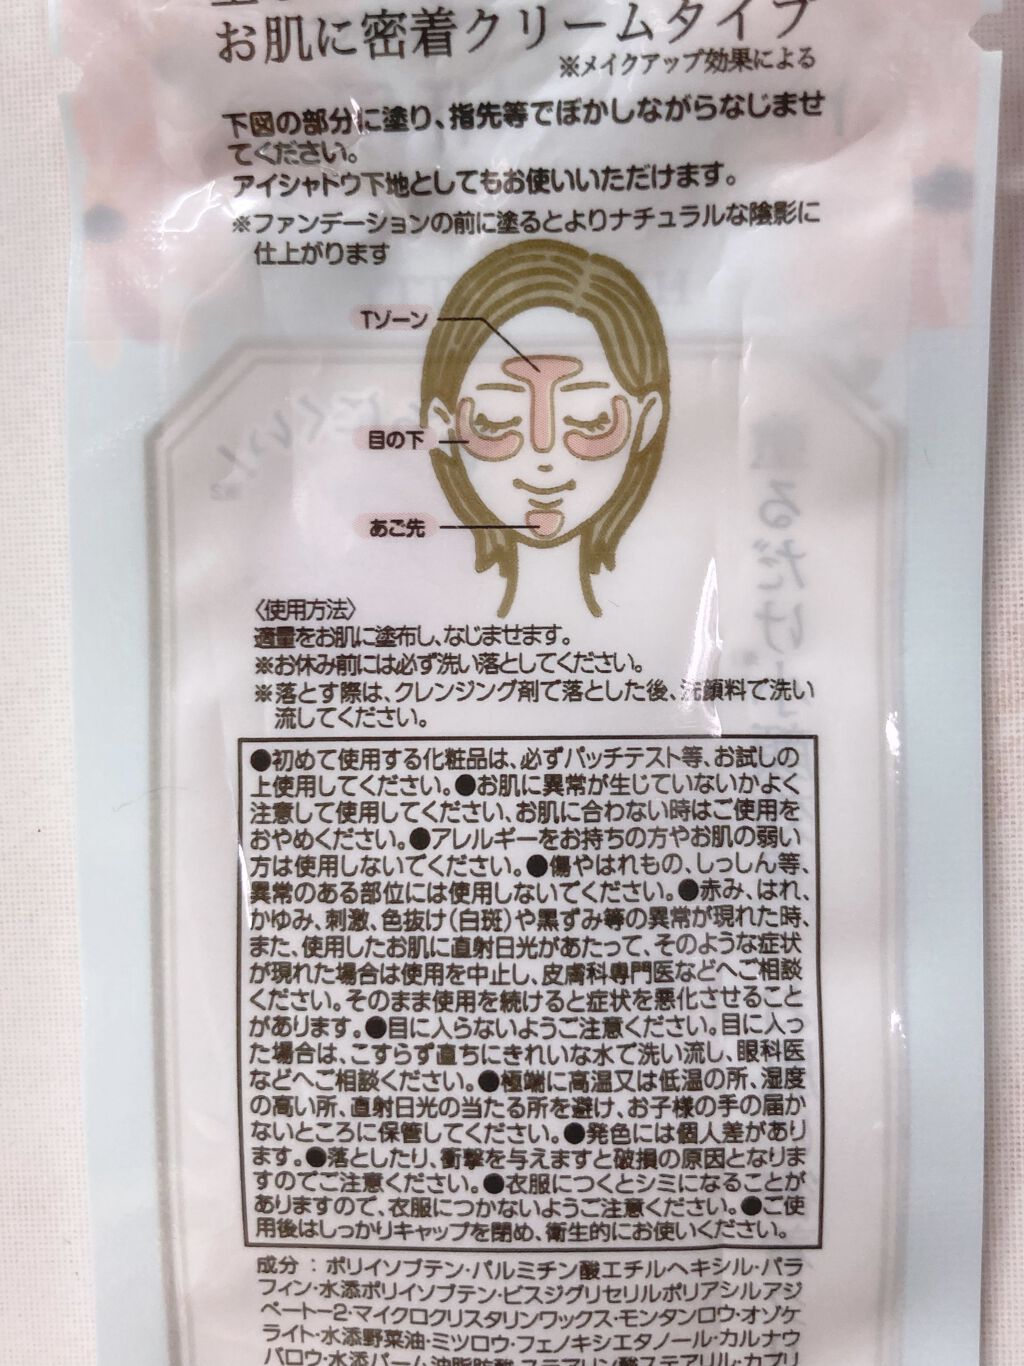 お肌に密着クリームタイプ
※メイクアップ効果による
下図の部分に塗り、指先等でぼかしながらなじませ
てください。
アイシャドウ下地としてもお使いいただけます。
※ファンデーションの前に塗るとよりナチュラルな陰影に
仕上がります
Tゾーン
目の下
あご先
〈使用方法〉
適量をお肌に塗布し、なじませます。
※お休み前には必ず洗い落としてください。
※落とす際は、クレンジング剤で落とした後、洗顔料で洗い
流してください。
●初めて使用する化粧品は、必ずパッチテスト等、お試しの
上使用してください。●お肌に異常が生じていないかよく
注意して使用してください、お肌に合わない時はご使用を
おやめください。●アレルギーをお持ちの方やお肌の弱い
方は使用しないでください。●傷やはれもの、しっしん等、
異常のある部位には使用しないでください。●赤み、はれ、
かゆみ、刺激、色抜け(白斑)や黒ずみ等の異常が現れた時、
また、使用したお肌に直射日光があたって、そのような症状
が現れた場合は使用を中止し、皮膚科専門医などへご相談
ください。そのまま使用を続けると症状を悪化させること
があります。●目に入らないようご注意ください。目に入っ
た場合は、こすらず直ちにきれいな水で洗い流し、眼科医
などへご相談ください。●極端に高温又は低温の所、湿度
の高い所、直射日光の当たる所を避け、お子様の手の届か
ないところに保管してください。●発色には個人差があり
ます。●落としたり、衝撃を与えますと破損の原因となりま
すのでご注意ください。●衣服につくとシミになることが
ありますので、衣服につかないようご注意ください。●ご使
用後はしっかりキャップを閉め、衛生的にお使いください。
成分：ポリイソブテン・パルミチン酸エチルヘキシル・パラ
フィン・水添ポリイソブテン・ビスジグリセリルポリアシルアジ
ペート-2・マイクロクリスタリンワックス・モンタンロウ・オゾケ
ライト・水添野菜油・ミツロウ・フェノキシエタノール・カルナウ
バロウ・水添パーム油脂肪酸・ステアリン酸ステアリル・カプリ